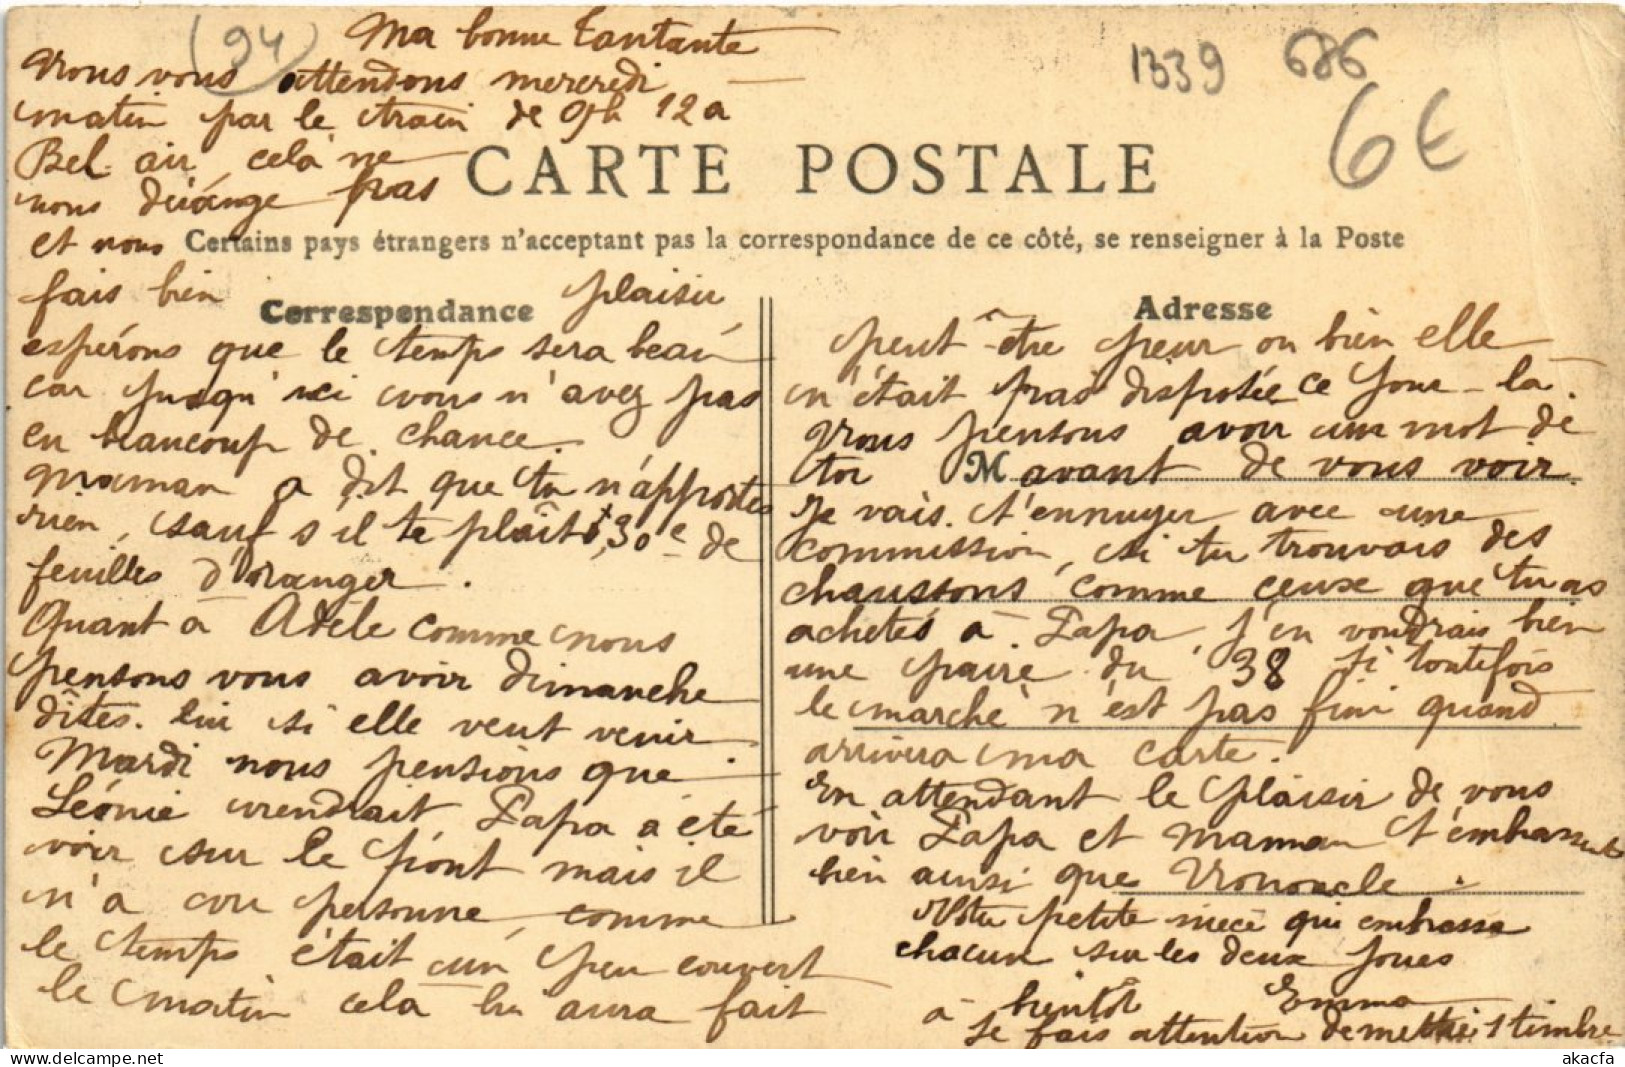 (94)
1339 686
6€
Ma bonne Tantante
Nous vous attendons mercredi
matin par le train de 9h 12 a
Bel-air, cela ne
nous dérange pas
CARTE POSTALE
et nous
Certains pays étrangers n'acceptant pas la correspondance de ce côté, se renseigner à la Poste
fais bien plaisir
Correspondance
espérons que le temps sera beau
car jusqu'ici vous n'avez pas
eu beaucoup de chance.
Maman a dit que tu n'apportes
rien, sauf s'il te plaît 1,30e de
feuilles d'oranger.
Quant à Adèle comme nous
pensons vous avoir dimanche
dîtes-lui si elle veut venir.
Mardi nous pensions que
Léonie viendrait, Papa a été
voir sur le pont mais il
n'a vu personne, comme
le temps était un peu couvert
le matin cela lui aura fait
Adresse
peut-être peur ou bien elle
n'était pas disposée ce jour-là.
Nous pensons avoir un mot de
toi avant de vous voir.
M
Je vais t'ennuyer avec une
commission, si tu trouvais des
chaussons comme ceux que tu as
achetés à Papa, j'en voudrais bien
une paire du 38 si toutefois
le marché n'est pas fini quand
arrivera ma carte.
En attendant le plaisir de vous
voir Papa et Maman t'embrassent
bien ainsi que Nononcle.
Votre petite nièce qui embrasse
chacun sur les deux joues
à bientôt Emma
Je fais attention de mettre 1 timbre
akacfa